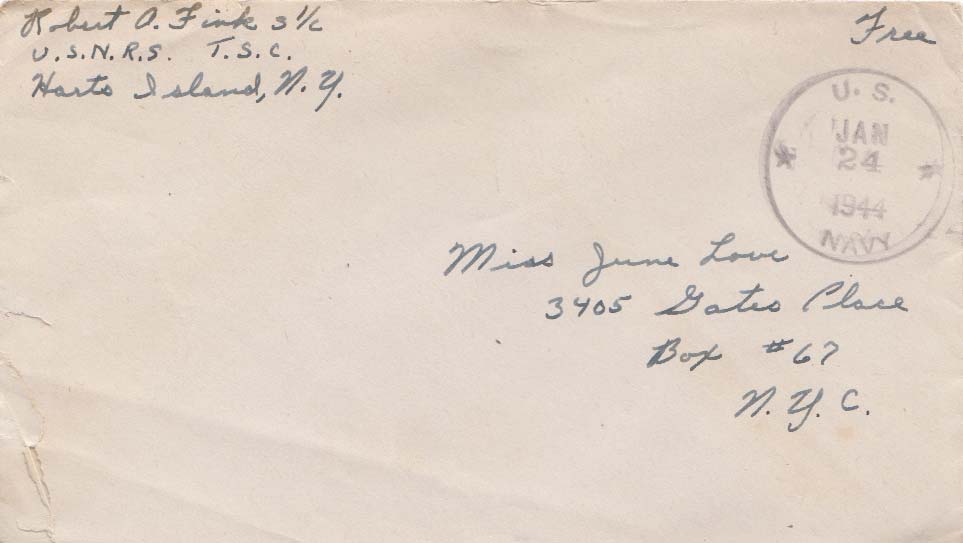 Robert A. Fink S 1/c
U.S.N.R.S. T.S.C.
Harts Island, N.Y.
Free
U. S.
JAN
24
1944
NAVY
Miss June Love
3405 Gates Place
Box #67
N.Y.C.